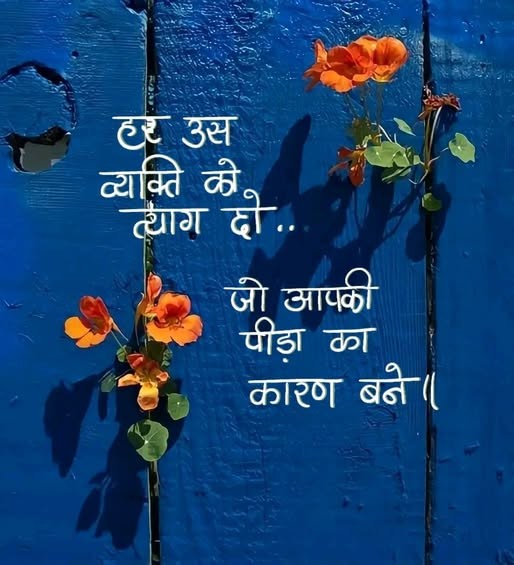 हर उस
व्यक्ति को
त्याग दो...
जो आपकी
पीड़ा का
कारण बने॥